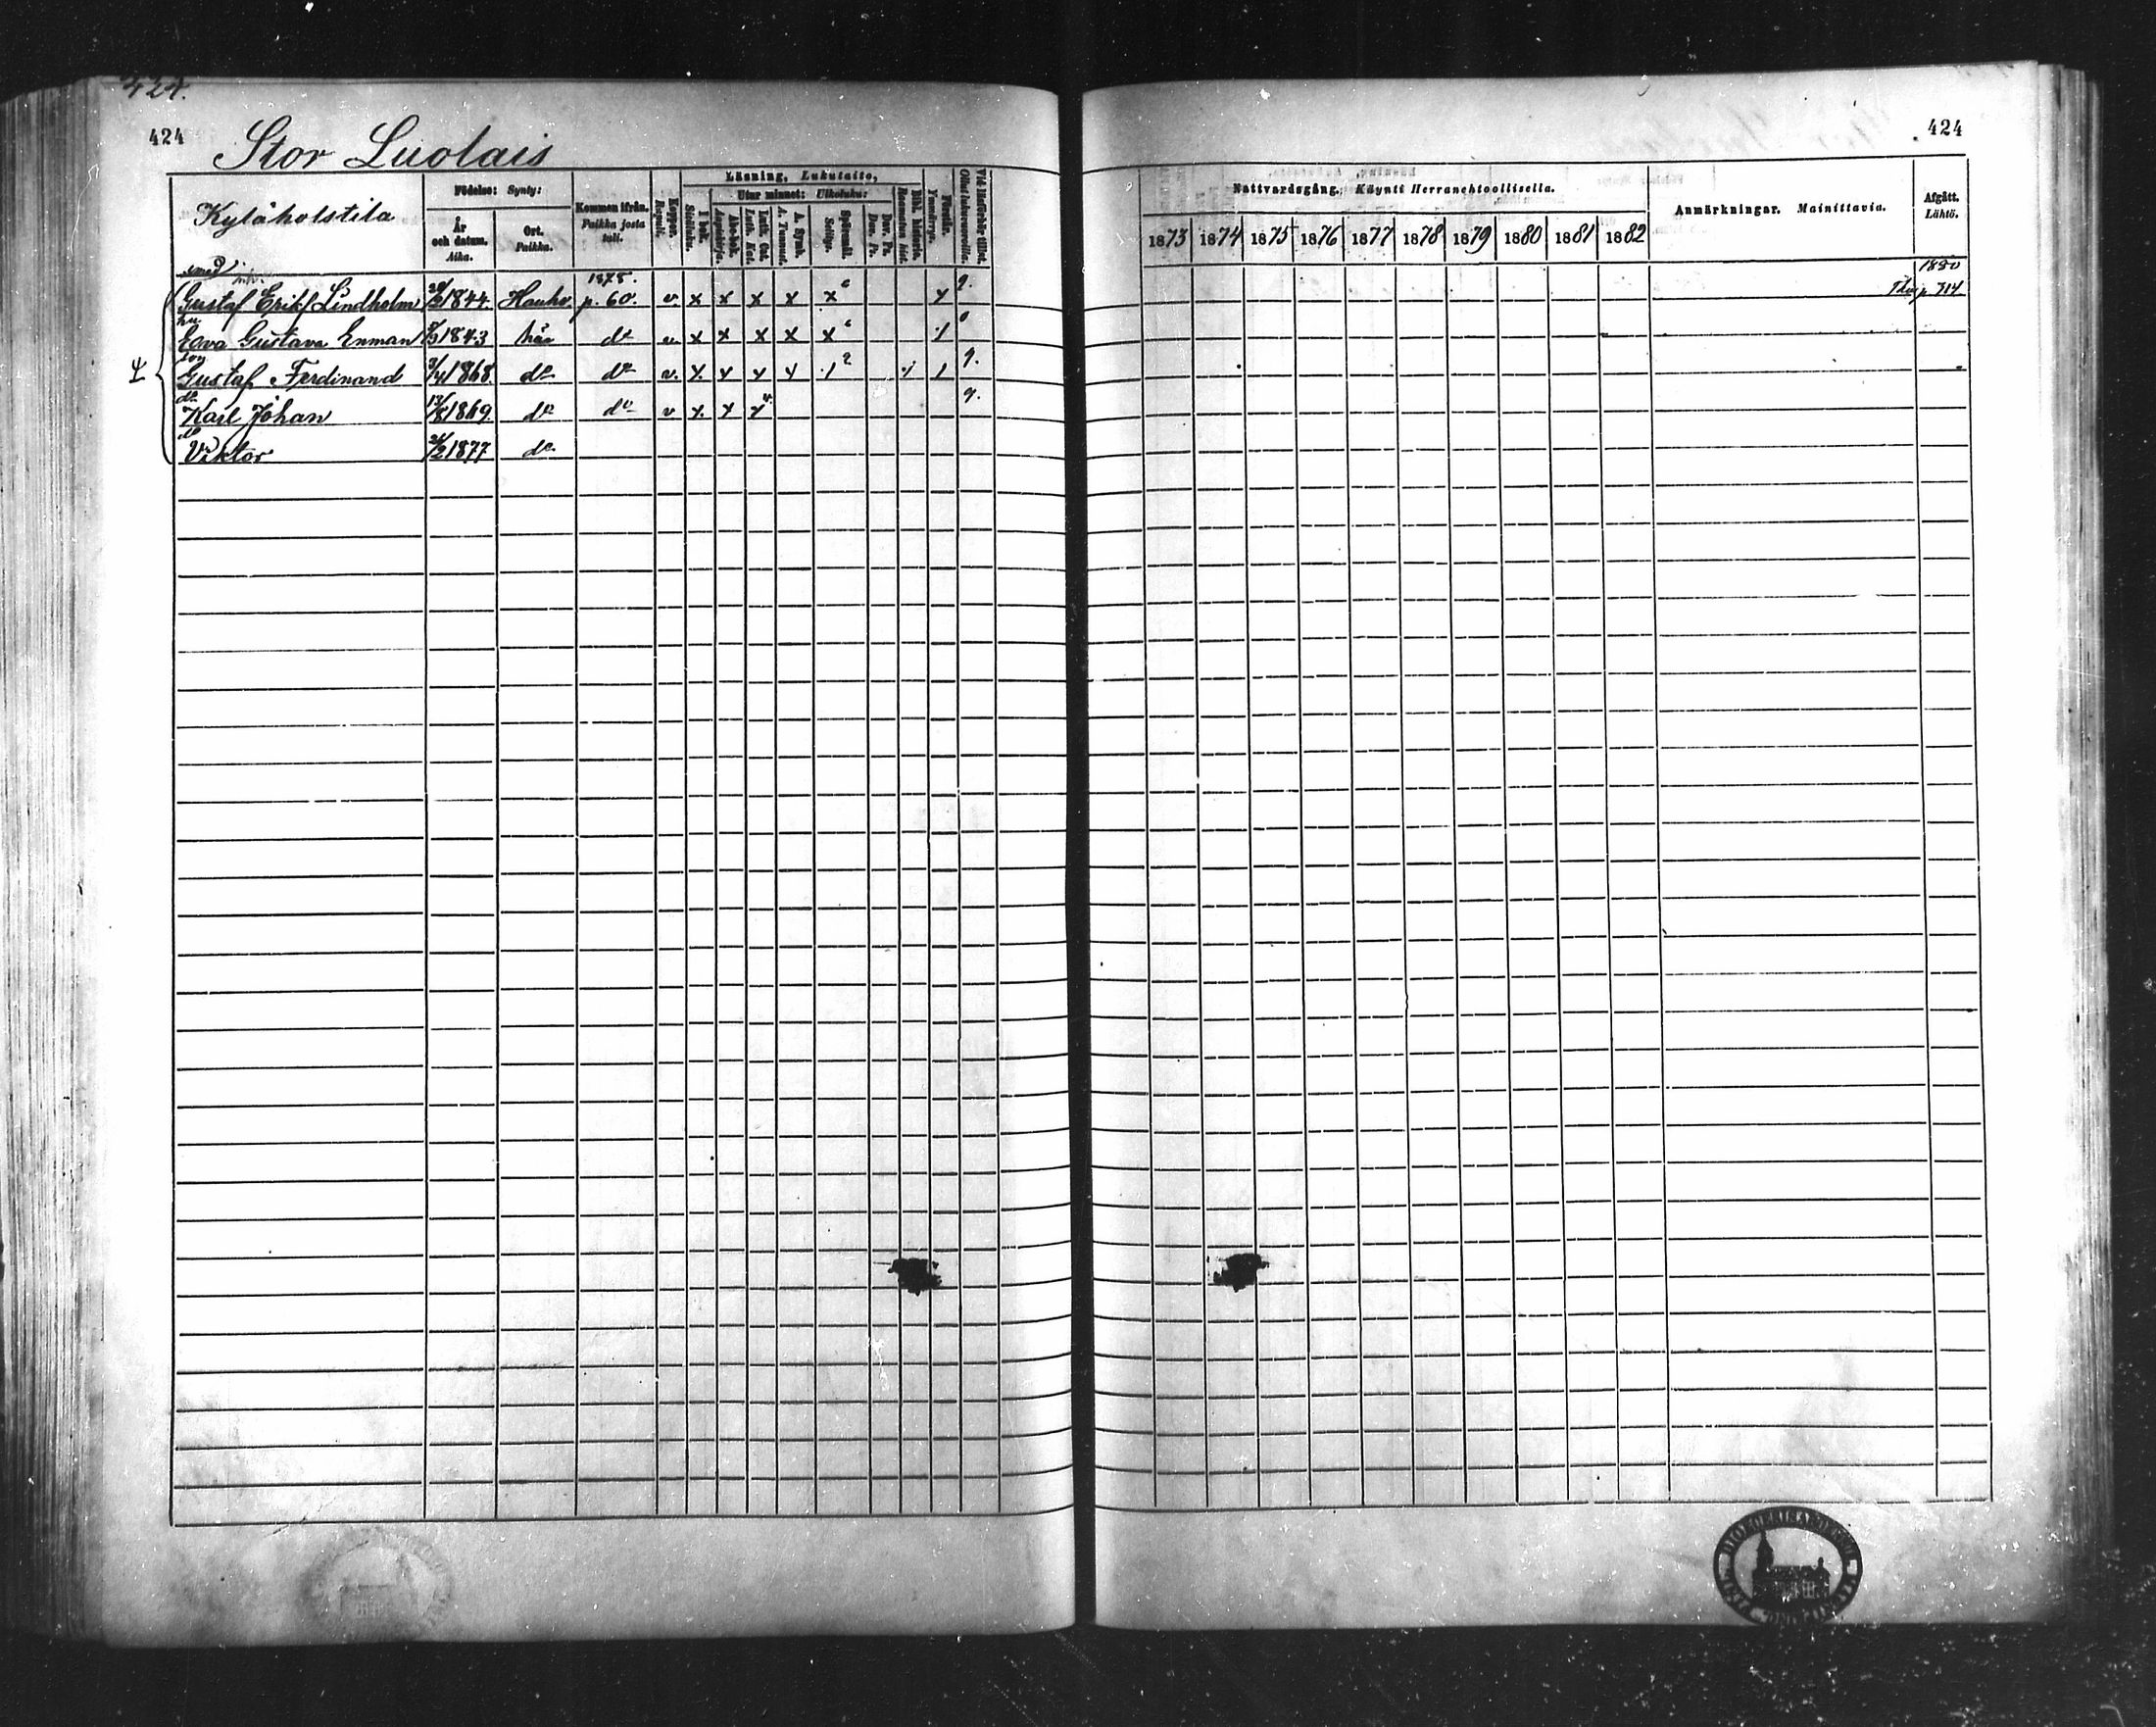 424.
424
Stor Luolais
Kyläholstila
Födelse: Synty:
År och datum. Aika.
Ort. Paikka.
Kommen ifrån. Paikka josta tuli.
Koppor. Rupuli.
Läsning, Lukutaito,
I bok. Sisäluku.
Utur minnet: Ulkoluku:
Abc-bok. Aapiskirja.
Luth. Cat. Luth. Kat.
A. Symb. A. Tunnust.
Spörsmål. Selitys.
Dav. Ps. Dav. Ps.
Bibl. historia. Raamatun hist.
Förstår. Ymmärrys.
Vid läsförhör tillst. Ollut lukuvuorolla.
smed
Gustaf Erikss. Lindholm 1844. Hauho 1878. p. 60. v. x x x x x x
hu.
Eava Gustava Enman 1843 här do v. x x x x x
son
Gustaf Ferdinand 3/4 1868. do do v. x. x x x
do
Karl Johan 13/8 1869. do do v x. x x
do
Viktor 1877 do
424
Nattvardsgång. Käynti Herranehtoollisella.
1873 1874 1875 1876 1877 1878 1879 1880 1881 1882
Anmärkningar. Mainittavia.
Afgått. Lähtö.
1880
p 314